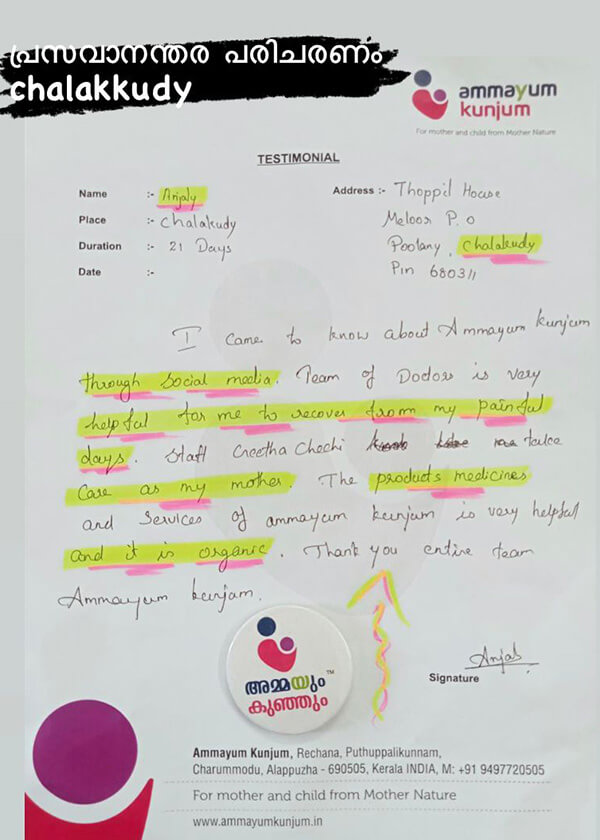 പ്രസവാനന്തര പരിചരണം
chalakkudy
ammayum
kunjum
For mother and child from Mother Nature
TESTIMONIAL
Name :- Anjaly
Address :- Thoppil House
Place :- Chalakudy
Meloor P.O
Duration :- 21 Days
Poolany, Chalakudy
Date :-
Pin 680311
I came to know about Ammayum kunjum
through social media. Team of Doctors is very
helpful for me to recover from my painful
days. Staff Geetha Chechi me take
care as my mother. The products medicines
and services of ammayum kunjum is very helpful
and it is organic. Thank you entire team
Ammayum kunjam.
അമ്മയും TM
കുഞ്ഞും
Anjali
Signature
Ammayum Kunjum, Rechana, Puthuppalikunnam,
Charummodu, Alappuzha - 690505, Kerala INDIA, M: +91 9497720505
For mother and child from Mother Nature
www.ammayumkunjum.in